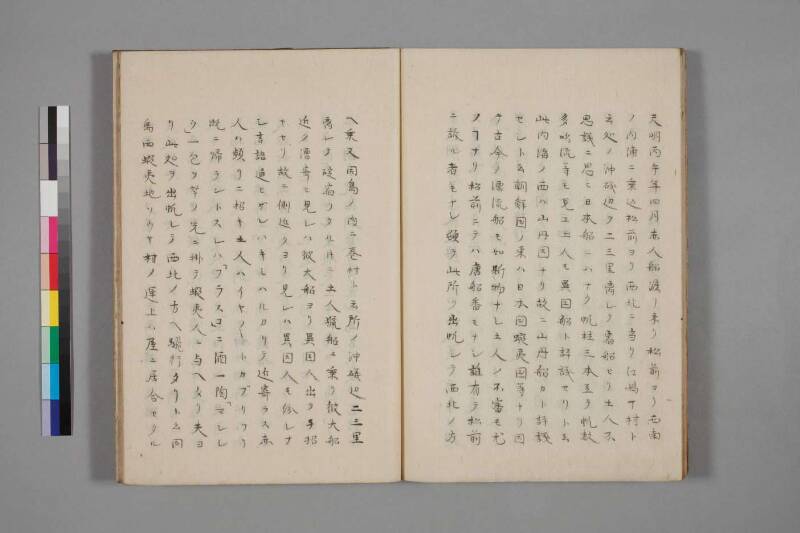 天明丙午年四月赤人船渡ノ来リ松前ヨリ東南
ノ内浦ニ乗込松前ヨリ西北ニ当リ江嶋サ村ト
云処ノ沖磯辺ヲ二三里隔レタ着船セリ土人不
思議ニ思ニ日本船ニハナク帆柱三本立ラ帆数
多吹流等モ見ユ土人モ異国船ト評議セリト云
此内海ノ西ハ山丹国ナリ故ニ山丹船カト評議
セント云朝鮮国ノ東ハ日本国蝦夷国等ナリ因
テ古今ノ漂流船モ如斯物ナレ土人ノ不審モ尤
ノコナリ松前ニテハ唐船番モナシ誰有テ松前
ニ訴ル者モナレ頓テ此所ヲ出帆シテ西北ノ方
ヘ乗又同島ノ内ニ巻村ト云所ノ沖磯辺二三里
隔レタ碇宿リタルヰニ土人猟船ニ乗リ彼大船
近ク漕寄ミ見レハ彼大船ヨリ異国人出ラ手招
セリ故ニ側近クヨリ見レハ異国人モ
シ言語通セサレハキレハルカリテ近寄ラス赤
人ハ頻リニ招キ土人ハイヤノートカブリフリ
既ニ帰ラントスレハフラスコニ酒一陶マレレ
ク一包ヲ竿ノ先ニ掛テ蝦夷人ニ与ヘタリ夫ヨ
リ此処ヲ出帆レテ西北ノ方ヘ駛行タリト云同
島西蝦夷地リウヤ村ノ運上小屋ニ居合セタル